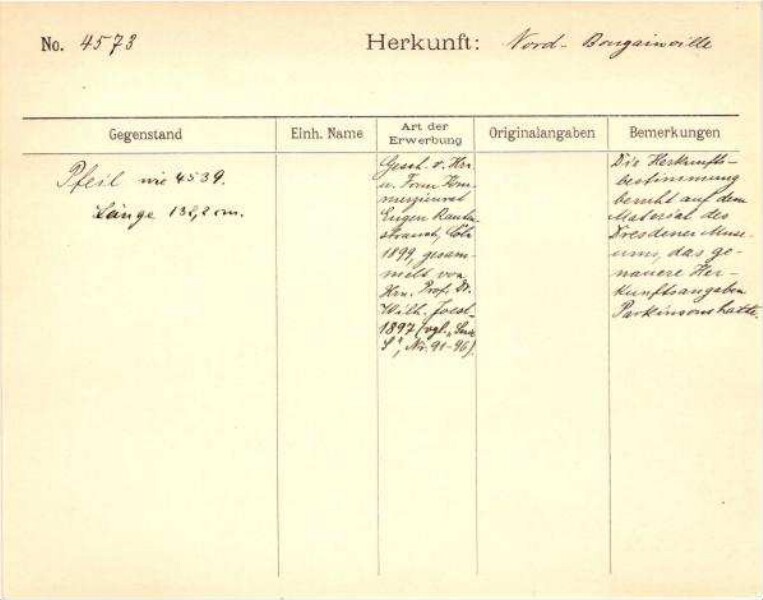 No. 4573
Herkunft: Nord-Bougainville
Gegenstand
Einh. Name
Art der Erwerbung
Originalangaben
Bemerkungen
Pfeil wie 4539.
Länge 138,2 cm.
Gesch. v. Hrn.
u. Frau Kom-
merzienrat
Eugen Rauten-
strauch, Cöln
1899, gesam-
melt von
Hrn. Prof. Dr.
Wilh. Joest
1897 (vgl. „
S", Nr. 91-96).
Die Herkunfts-
bestimmung
beruht auf dem
Material des
Dresdener Muse-
ums, das ge-
nauere Her-
kunftsangaben
Parkinsons hatte.